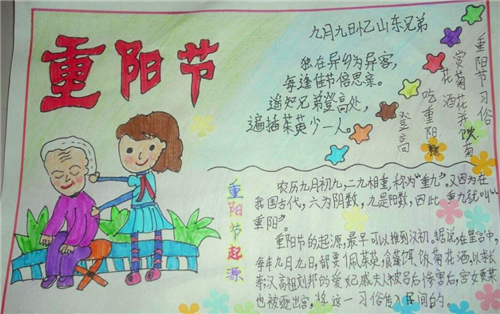 重阳节
九月九日忆山东兄弟
独在异乡为异客,
每逢佳节倍思亲。
遥知兄弟登高处,
遍插茱萸少一人。
重阳节习俗
赏菊花并饮菊
花酒
吃重阳糕
登高
重阳节起源
农历九月初九,二九相重,称为“重九”。又因为在
我国古代,六为阴数,九是阳数,因此,重九就叫“
重阳”。
重阳节的起源,最早可以推到汉初。据说,在皇宫中,
每年九月九日,都要佩茱萸,食蓬饵,饮菊花酒,以求长
寿,汉高祖刘邦的爱妃戚夫人被吕后惨害后,宫女贾某
也被逐出宫,将这一习俗传入民间的。